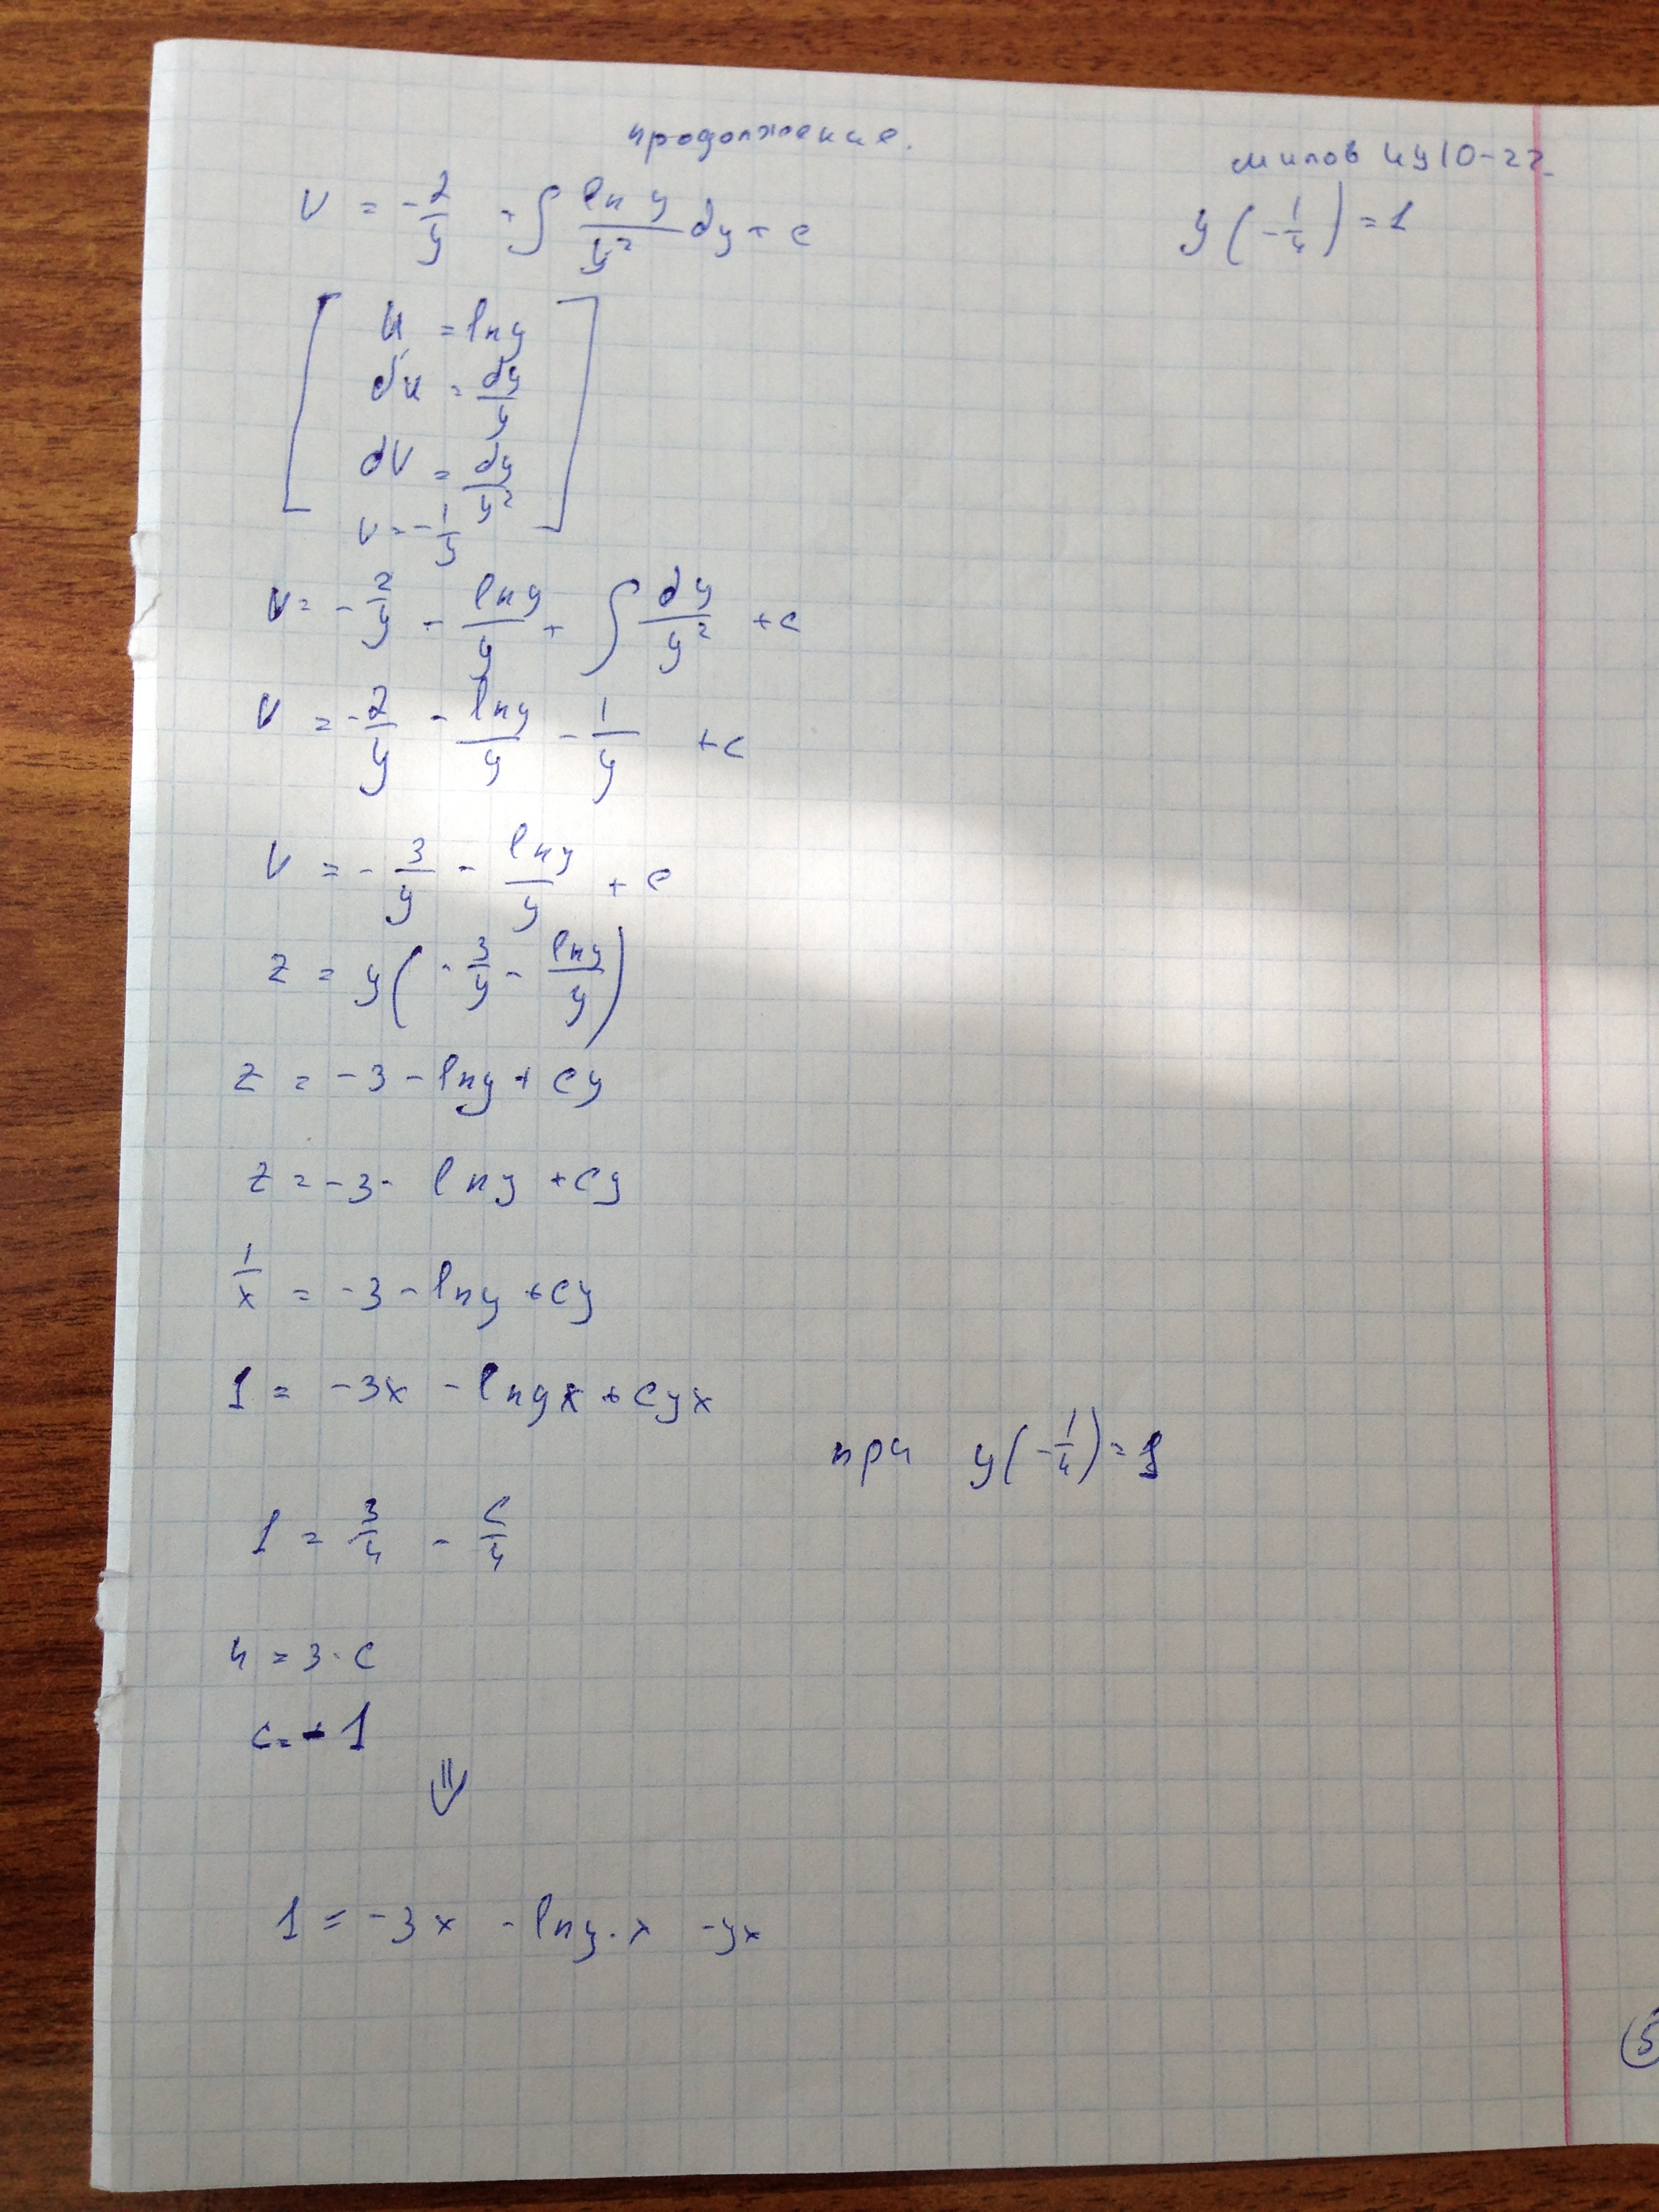 продолжение.
милов ИУ10-22
V = -2/y + ∫ ln y/y² dy + c
y(-1/4) = 1
[ u = ln y
du = dy/y
dV = dy/y²
v = -1/y ]
V = -2/y - ln y/y + ∫ dy/y² + c
V = -2/y - ln y/y - 1/y + c
V = -3/y - ln y/y + c
z = y(-3/y - ln y/y)
z = -3 - ln y + cy
z = -3 - ln y + cy
1/x = -3 - ln y + cy
1 = -3x - ln y x + cyx
при y(-1/4) = 1
1 = 3/4 - c/4
4 = 3 - c
c = -1
⇓
1 = -3x - ln y · x - yx
5